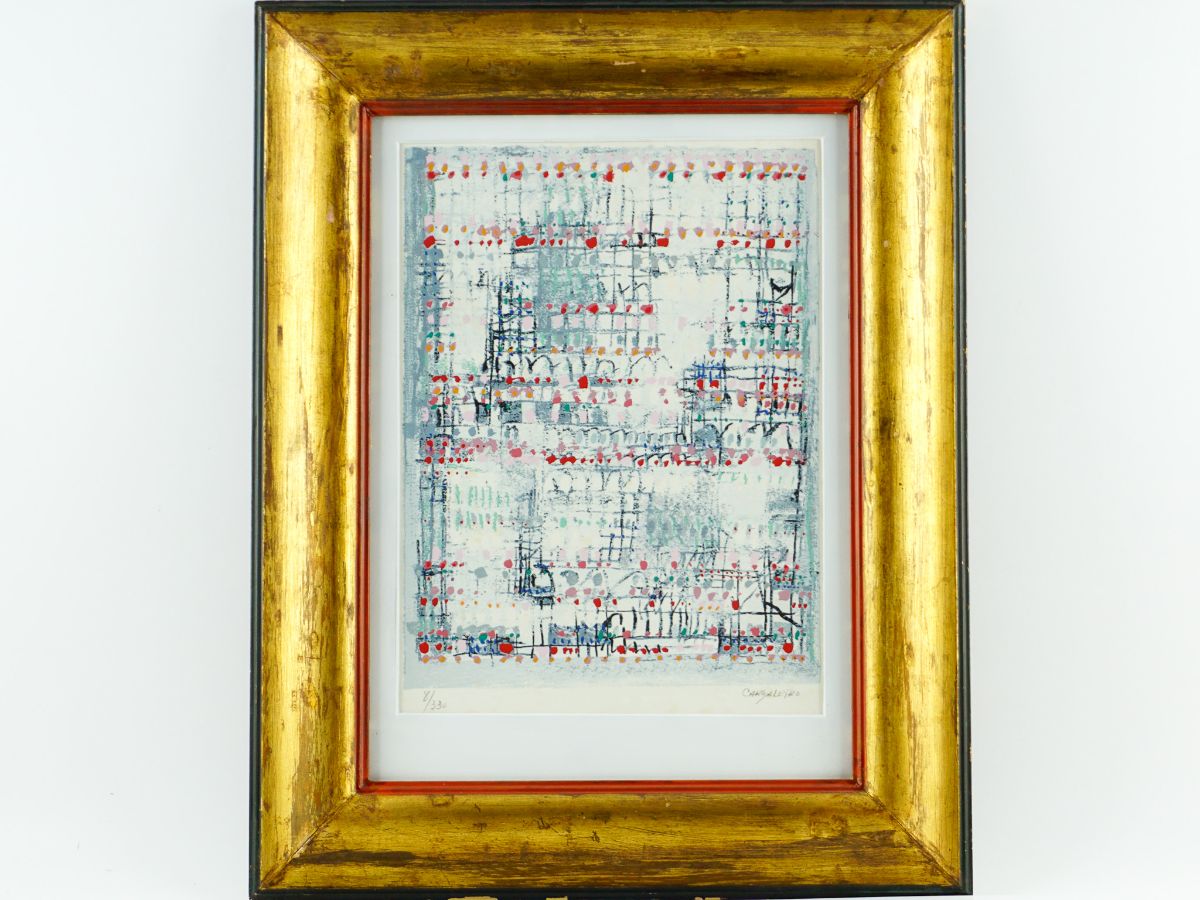 8/330
CARGALEIRO